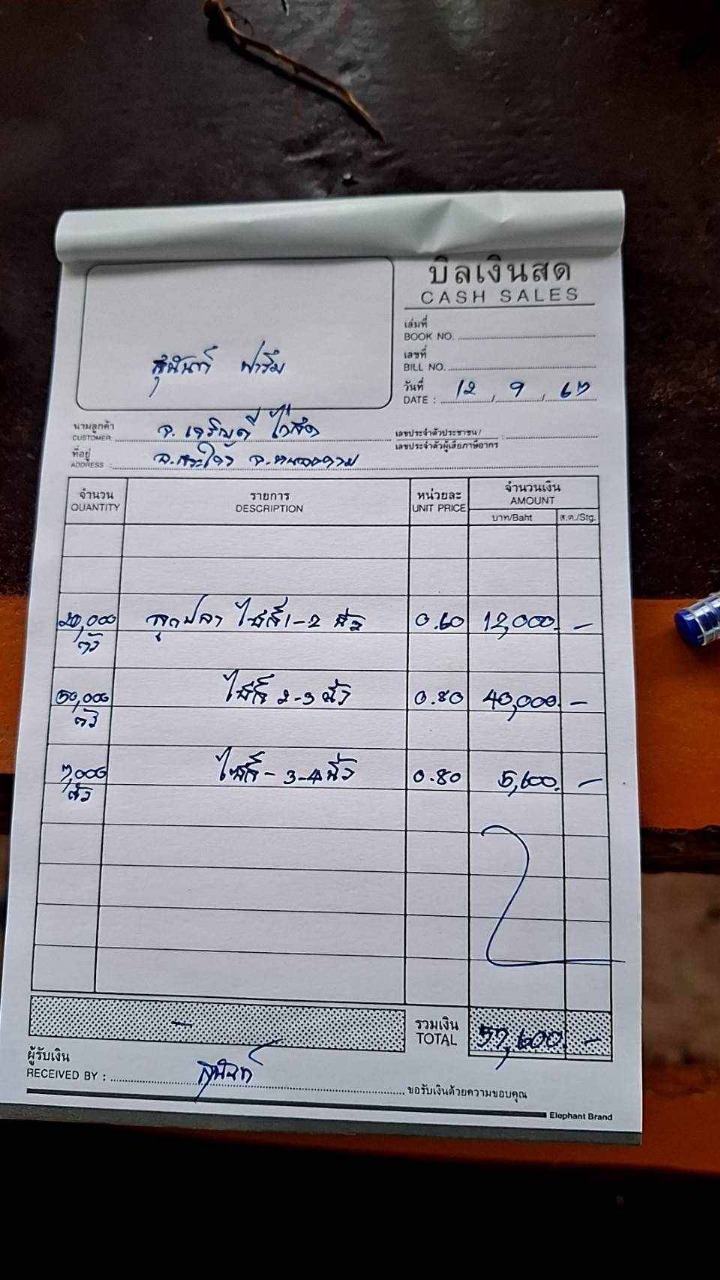 บิลเงินสด
CASH SALES
เล่มที่
BOOK NO.
เลขที่
BILL NO.
วันที่
DATE : 12 , 9 , 67
สุนันท์ ฟาร์ม
นามลูกค้า
CUSTOMER
เลขประจำตัวประชาชน/
เลขประจำตัวผู้เสียภาษีอากร
ที่อยู่
ADDRESS
จำนวน รายการ หน่วยละ จำนวนเงิน
QUANTITY DESCRIPTION UNIT PRICE AMOUNT
บาท/Baht ส.ต./Stg.
20,000 ลูกปลา ไซส์ 1-2 นิ้ว 0.60 12,000. -
ตัว
50,000 ไซส์ 2-3 นิ้ว 0.80 40,000. -
ตัว
7,000 ไซส์ - 3-4 นิ้ว 0.80 5,600. -
ตัว
-
รวมเงิน
TOTAL 57,600. -
ผู้รับเงิน
RECEIVED BY : สุนันท์ ขอรับเงินด้วยความขอบคุณ
Elephant Brand